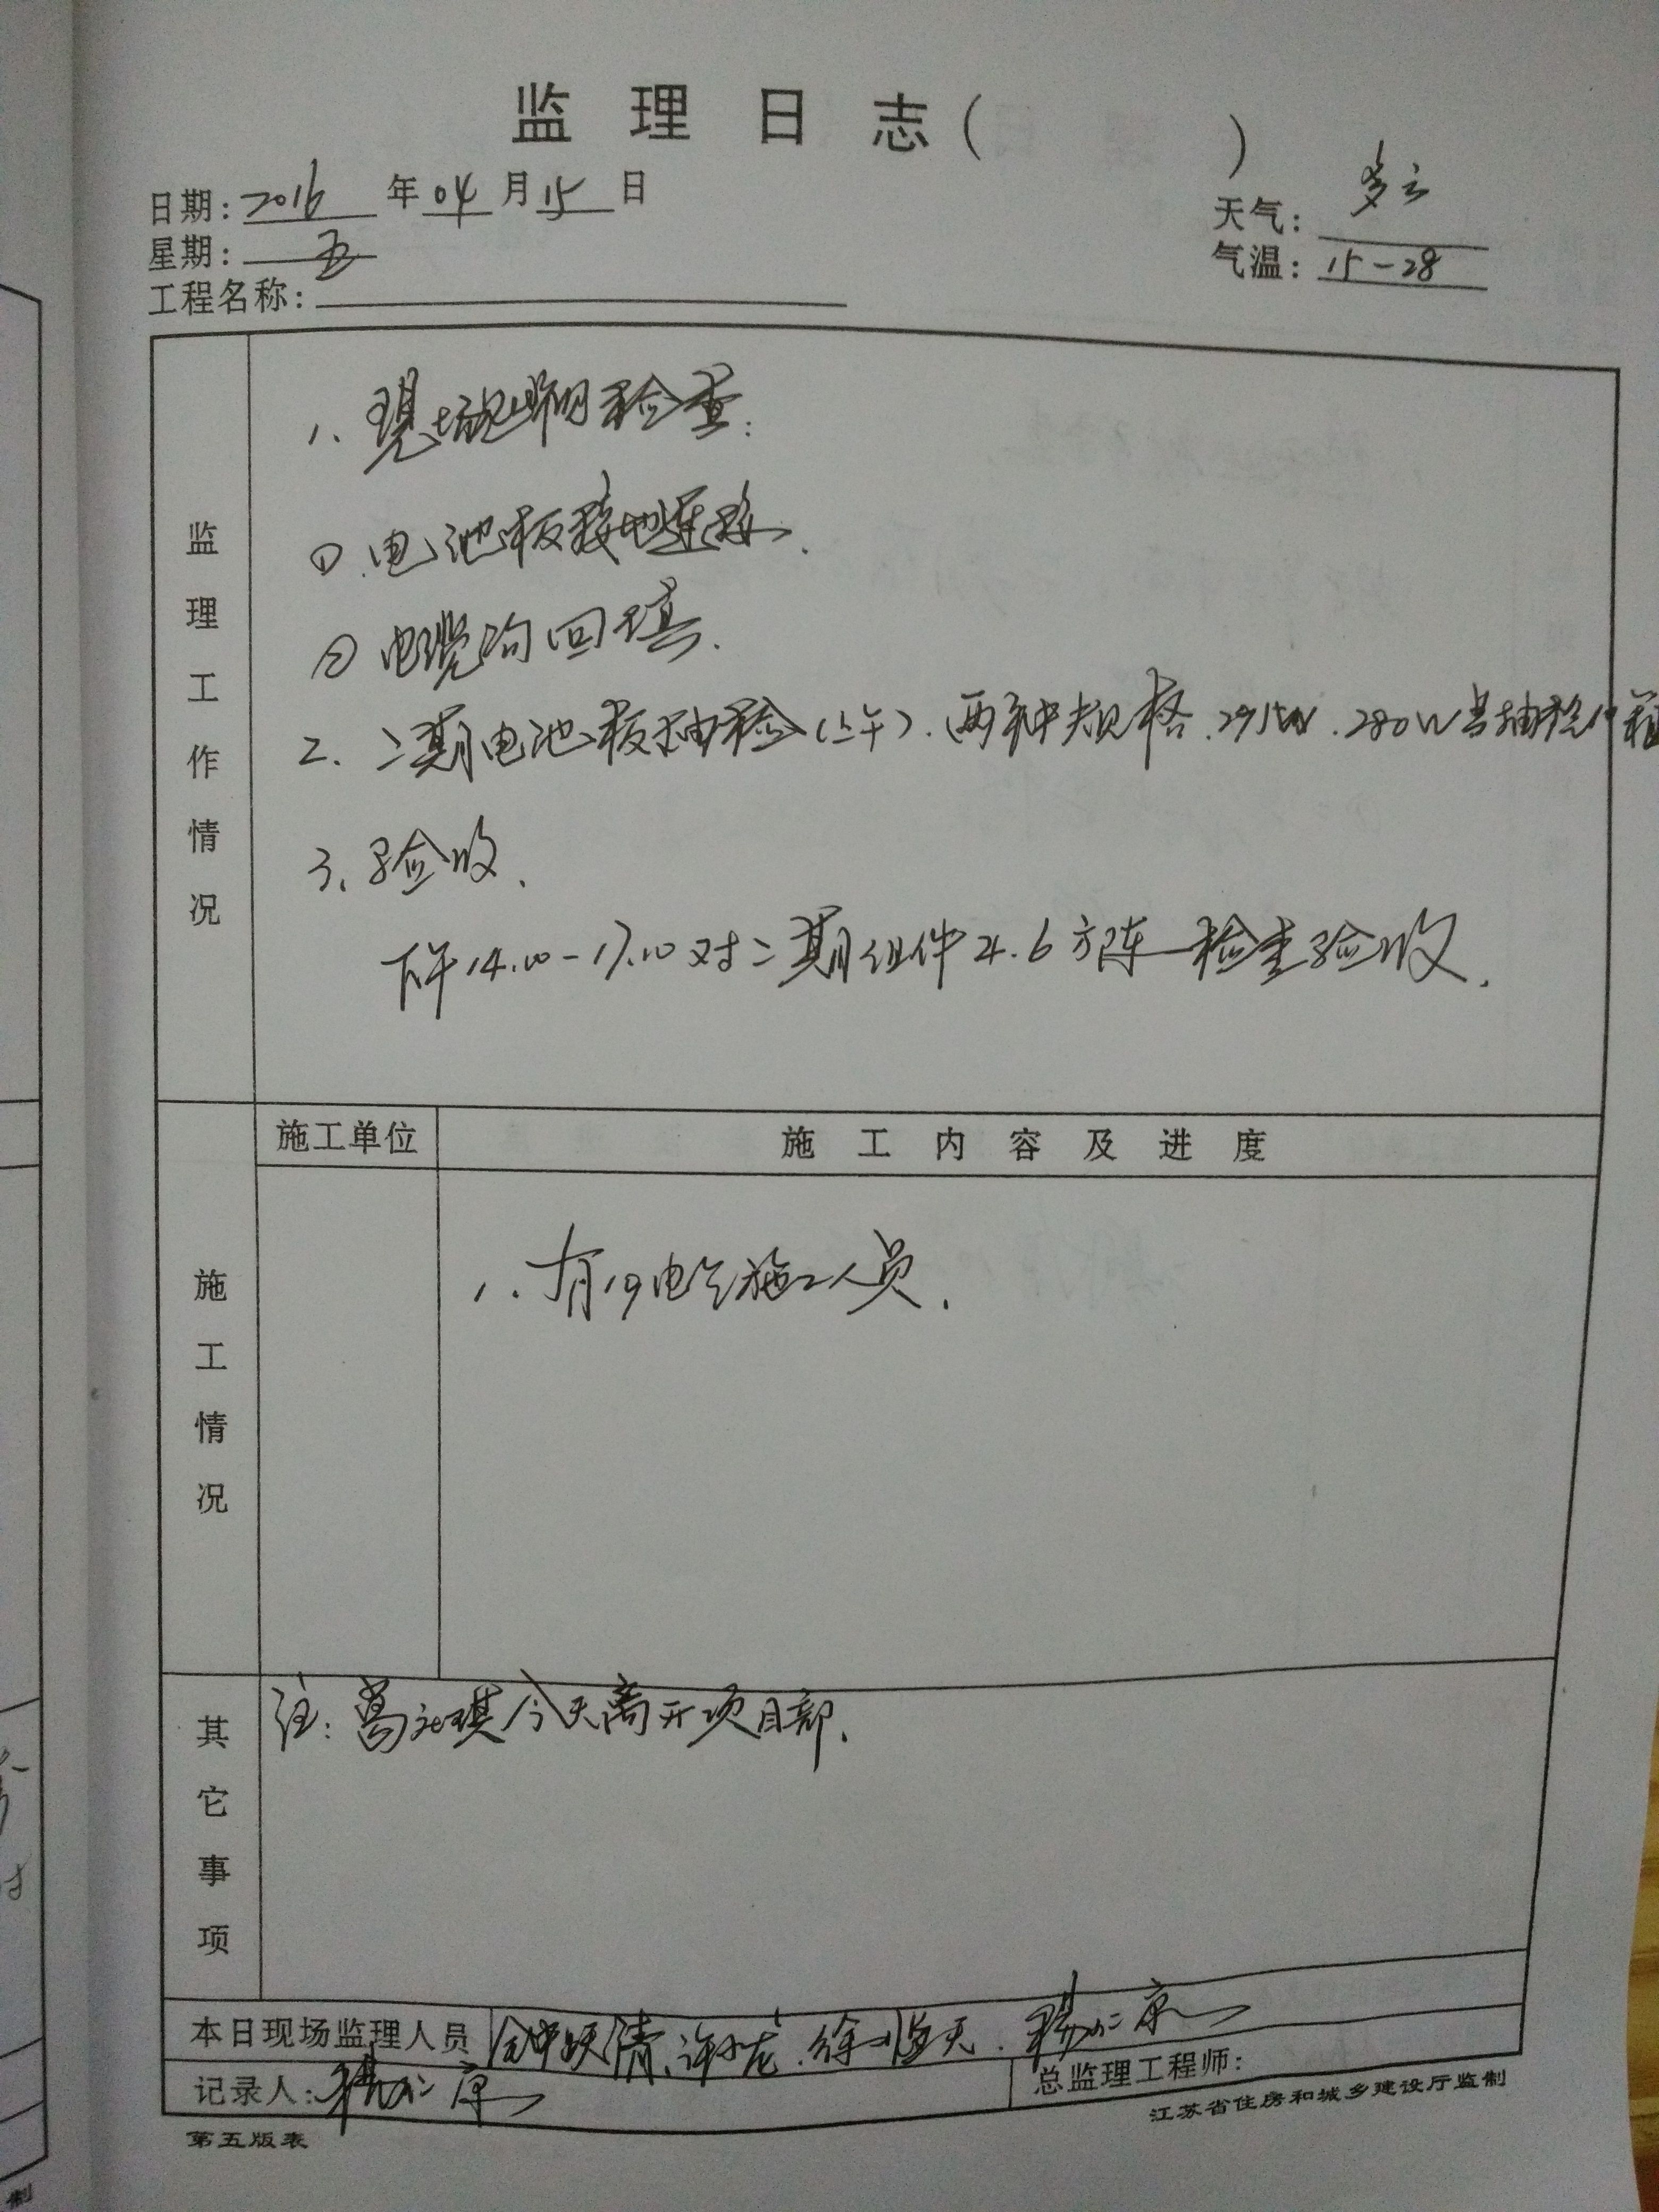 监理日志(          )
日期: 2016 年 04 月 15 日
天气: 多云
星期: 五
气温: 15-28
工程名称:
监理工作情况
1、现场 检查:
① 电池板接地连接.
② 电缆沟回填.
2、二期电池板抽检(上午).两种规格.295W.280W 抽检 箱
3、验收.
下午14.00-17.00对二期组件4.6方阵 检查验收.
施工单位
施工内容及进度
施工情况
1.有19电气施工人员.
其它事项
注: 葛 琪今天离开项目部.
本日现场监理人员 钟跃清、许小龙.徐 天.杨仁京
记录人: 杨仁京
总监理工程师:
第五版表
江苏省住房和城乡建设厅监制
制